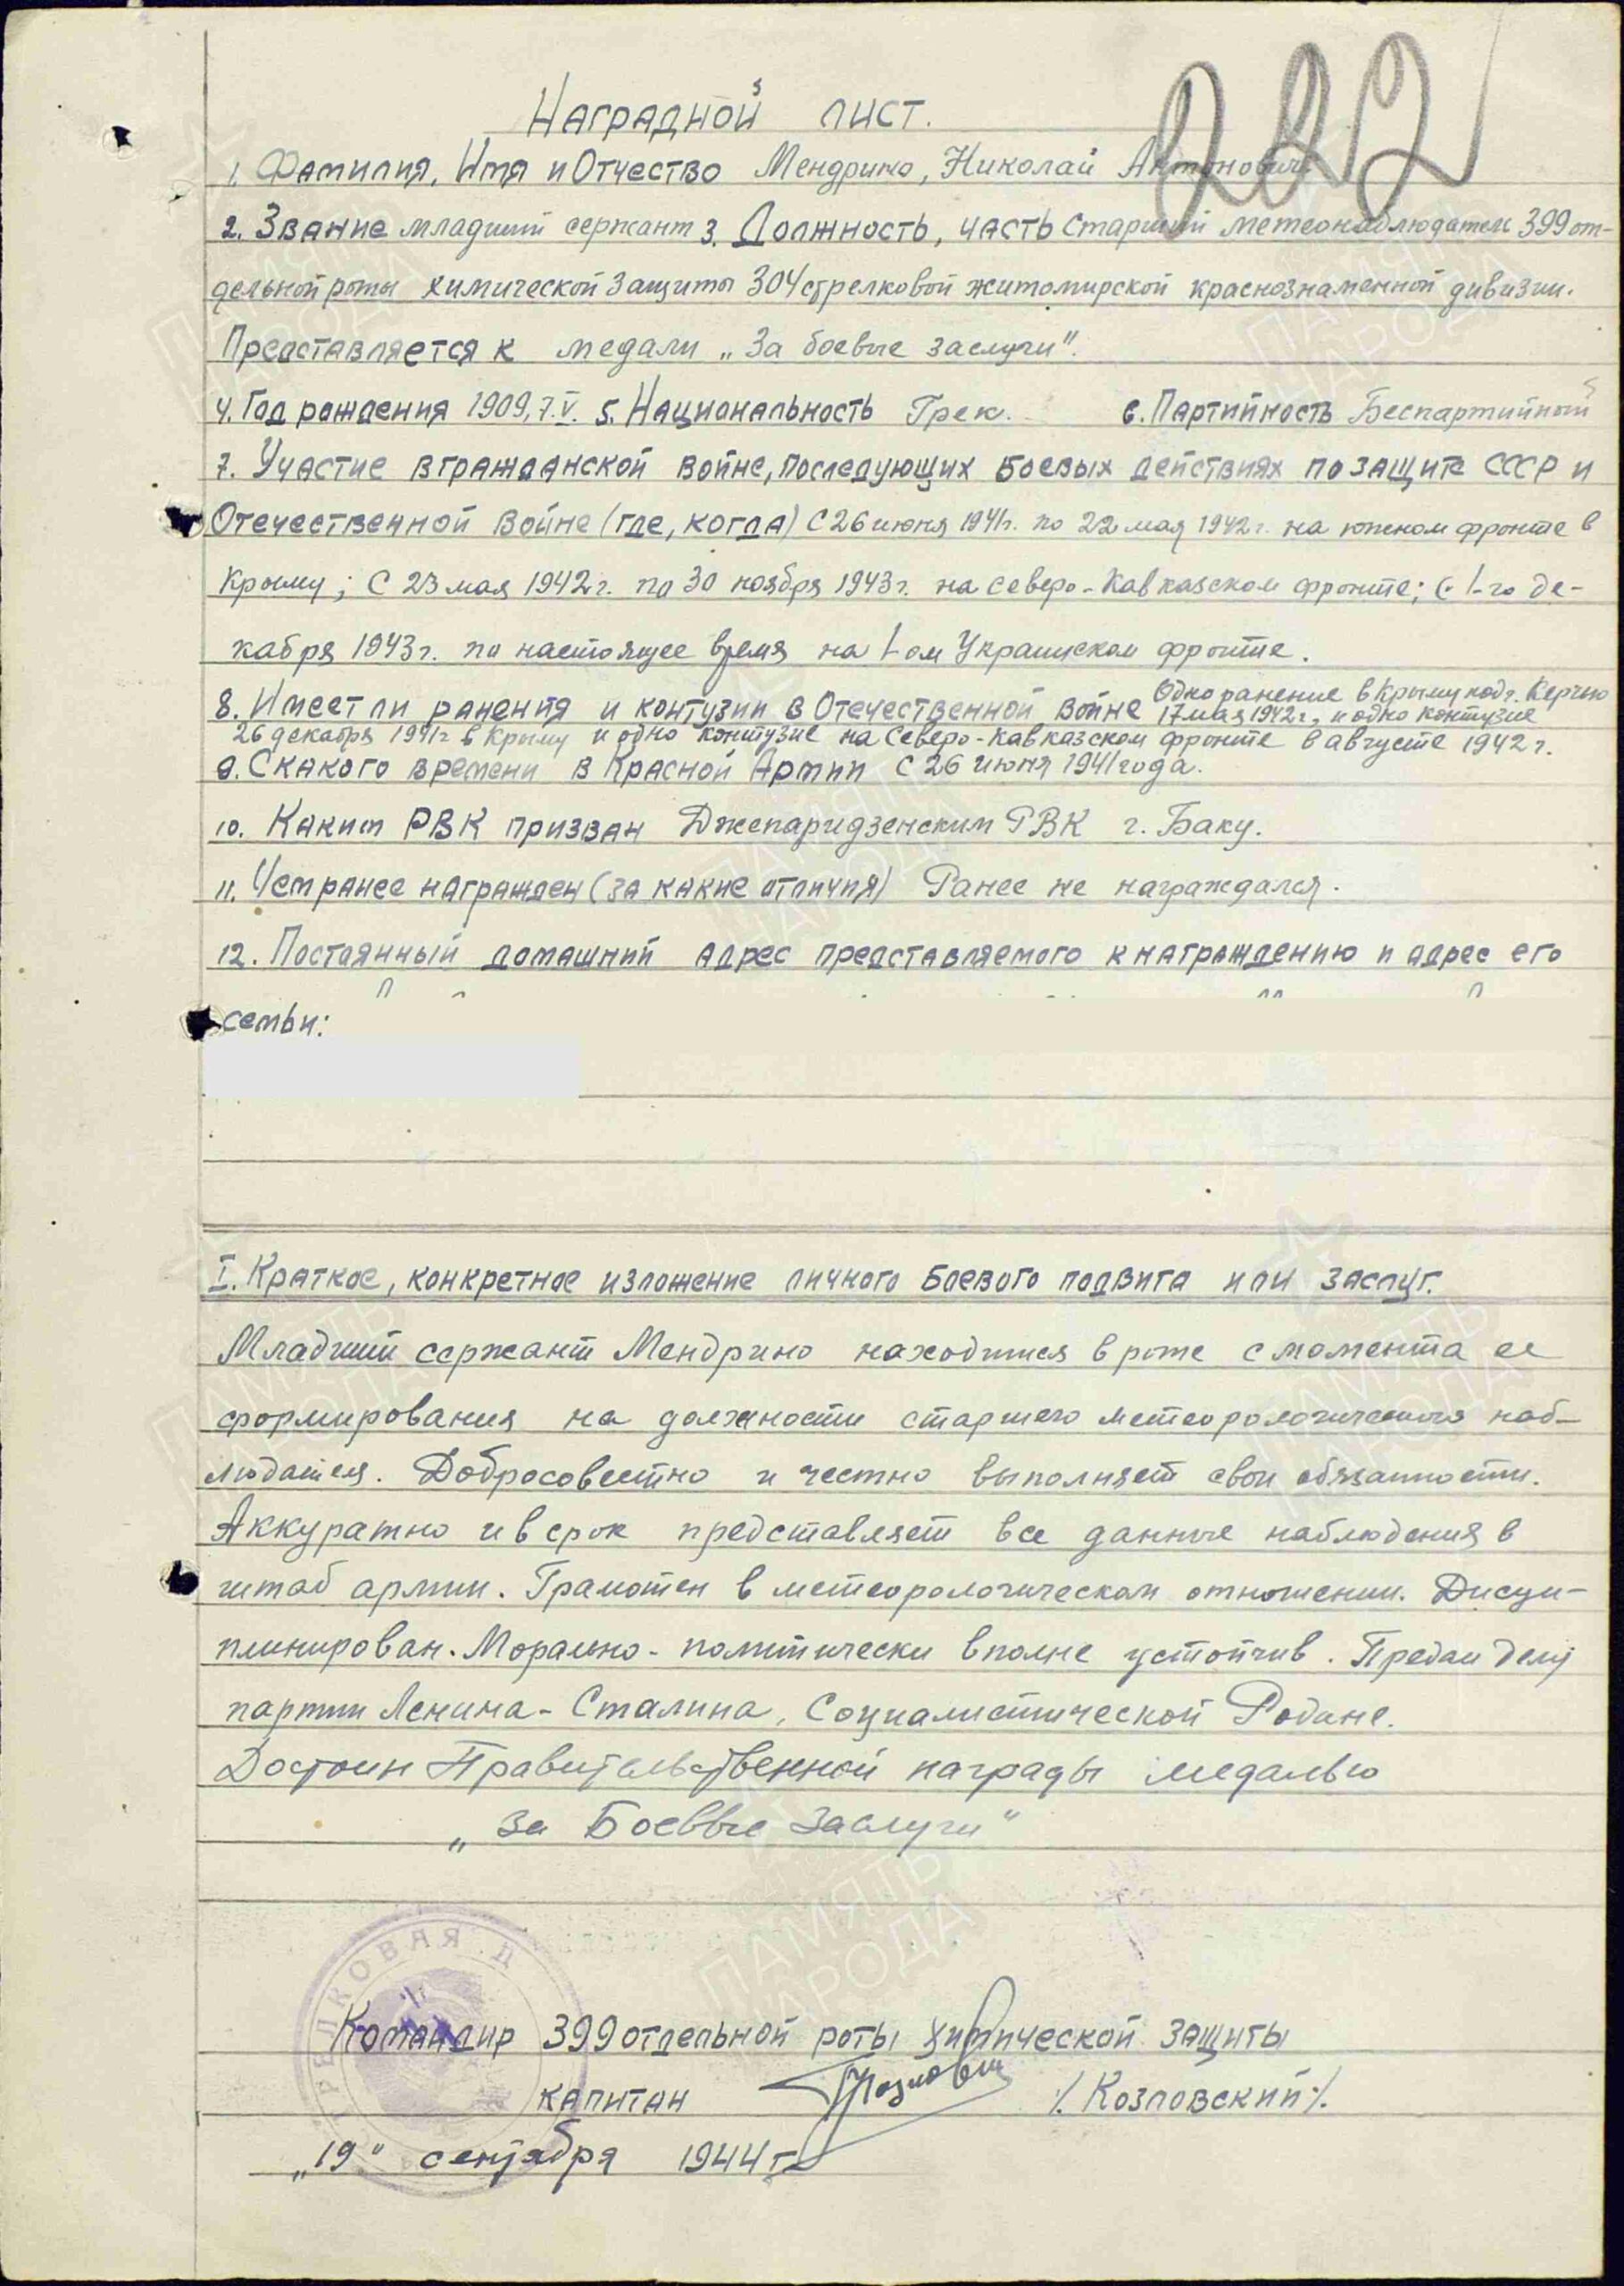 222
Наградной лист.
1. Фамилия, Имя и Отчество Мендрино, Николай Антонович.
2. Звание младший сержант 3. Должность, часть старший метеонаблюдатель 399 от-
дельной роты химической защиты 304 стрелковой житомирской краснознаменной дивизии.
Представляется к медали „За боевые заслуги".
4. Год рождения 1909, 7.V. 5. Национальность Грек. 6. Партийность Беспартийный
7. Участие в гражданской войне, последующих боевых действиях по защите СССР и
Отечественной войне (где, когда) С 26 июня 1941г. по 22 мая 1942г. на южном фронте в
Крыму; С 23 мая 1942г. по 30 ноября 1943г. на северо-Кавказском фронте; С 1-го де-
кабря 1943г. по настоящее время на 1-ом Украинском фронте.
8. Имеет ли ранения и контузии в Отечественной войне Одно ранение в Крыму под г. Керчью
17 мая 1942г., и одно контузие
26 декабря 1941г в Крыму и одно контузие на Северо-Кавказском фронте в августе 1942 г.
9. С какого времени в Красной Армии С 26 июня 1941 года.
10. Каким РВК призван Джепаридзенским РВК г. Баку.
11. Чем ранее награжден (за какие отличия) Ранее не награждался.
12. Постоянный домашний адрес представляемого к награждению и адрес его
семьи:
I. Краткое, конкретное изложение личного боевого подвига или заслуг.
Младший сержант Мендрино находится в роте с момента ее
формирования на должности старшего метеорологического наб-
людателя. Добросовестно и честно выполняет свои обязанности.
Аккуратно и в срок представляет все данные наблюдения в
штаб армии. Грамотен в метеорологическом отношении. Дисци-
плинирован. Морально-политически вполне устойчив. Предан делу
партии Ленина-Сталина, Социалистической Родине.
Достоин Правительственной награды медалью
„За Боевые Заслуги"
Командир 399 отдельной роты химической защиты
капитан /. Козловский ./
„19" сентября 1944 г.
СТРЕЛКОВАЯ Д
ПАМЯТЬ
НАРОДА